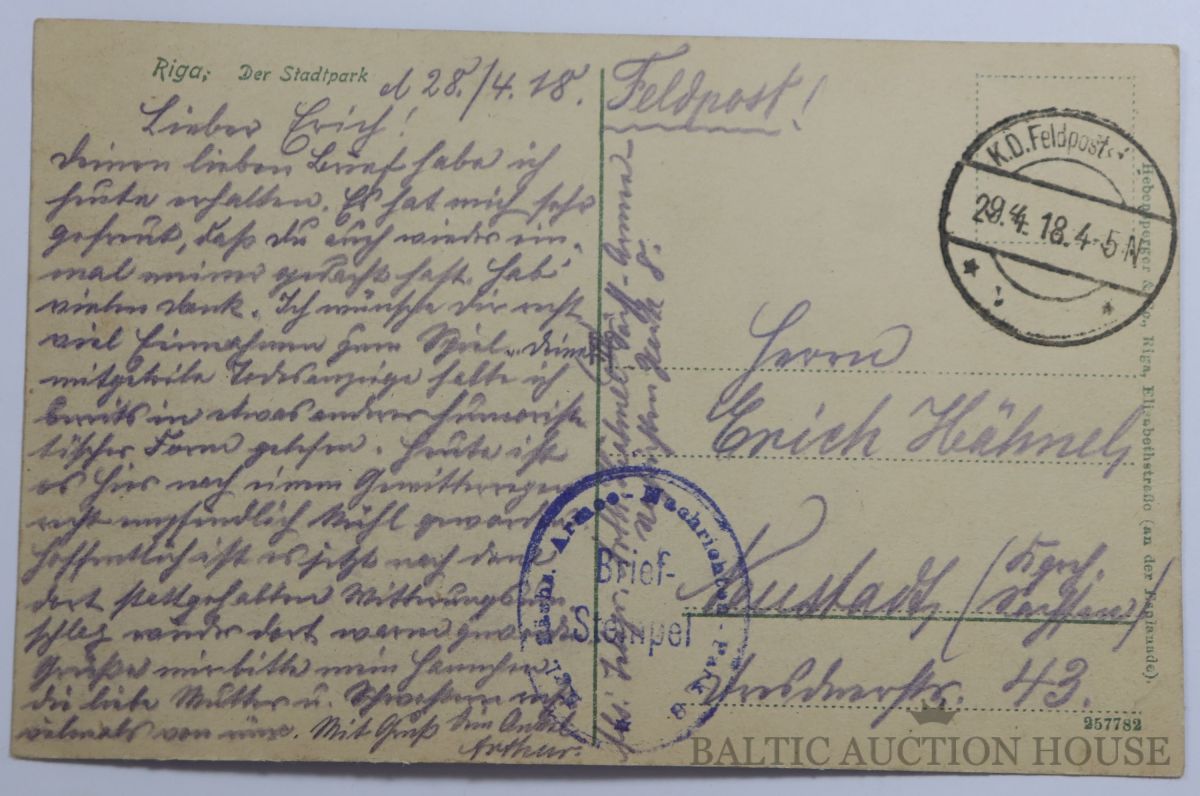 Riga, Der Stadtpark
d 28./4. 18.
Lieber Erich!
Deinen lieben Brief habe ich
heute erhalten. Es hat mich sehr
gefreut, daß Du auch wieder ein-
mal meiner gedacht hast. Hab
vielen Dank. Ich wünsche Dir recht
viel Einnahmen zum Spiel. Deine
mitgeteilte Todesanzeige hatte ich
bereits in etwas anderer humoristi-
tischer Form gelesen. Heute ist
es hier nach einem Gewitterregen
recht empfindlich kühl geworden
Hoffentlich ist es jetzt nach dem
dort stattgehabten Witterungsum-
schlag wieder dort warm geworden
Grüße mir bitte mein Hannchen
die liebe Mutter u. Schwestern
vielmals von mir. Mit Gruß Dein Onkel
Arthur.
Feldpost!
K.D. Feldpost
29.4.18. 4-5 N
Herrn
Erich Hähnel,
Neustadt, (Kgrch. Sachsen)
Dresdnerstr. 43.
Armee-Nachrichten-Park 8
Brief-
Stempel
Hebensperger & Co., Riga, Elisabethstraße (an der Esplanade)
257782
BALTIC AUCTION HOUSE